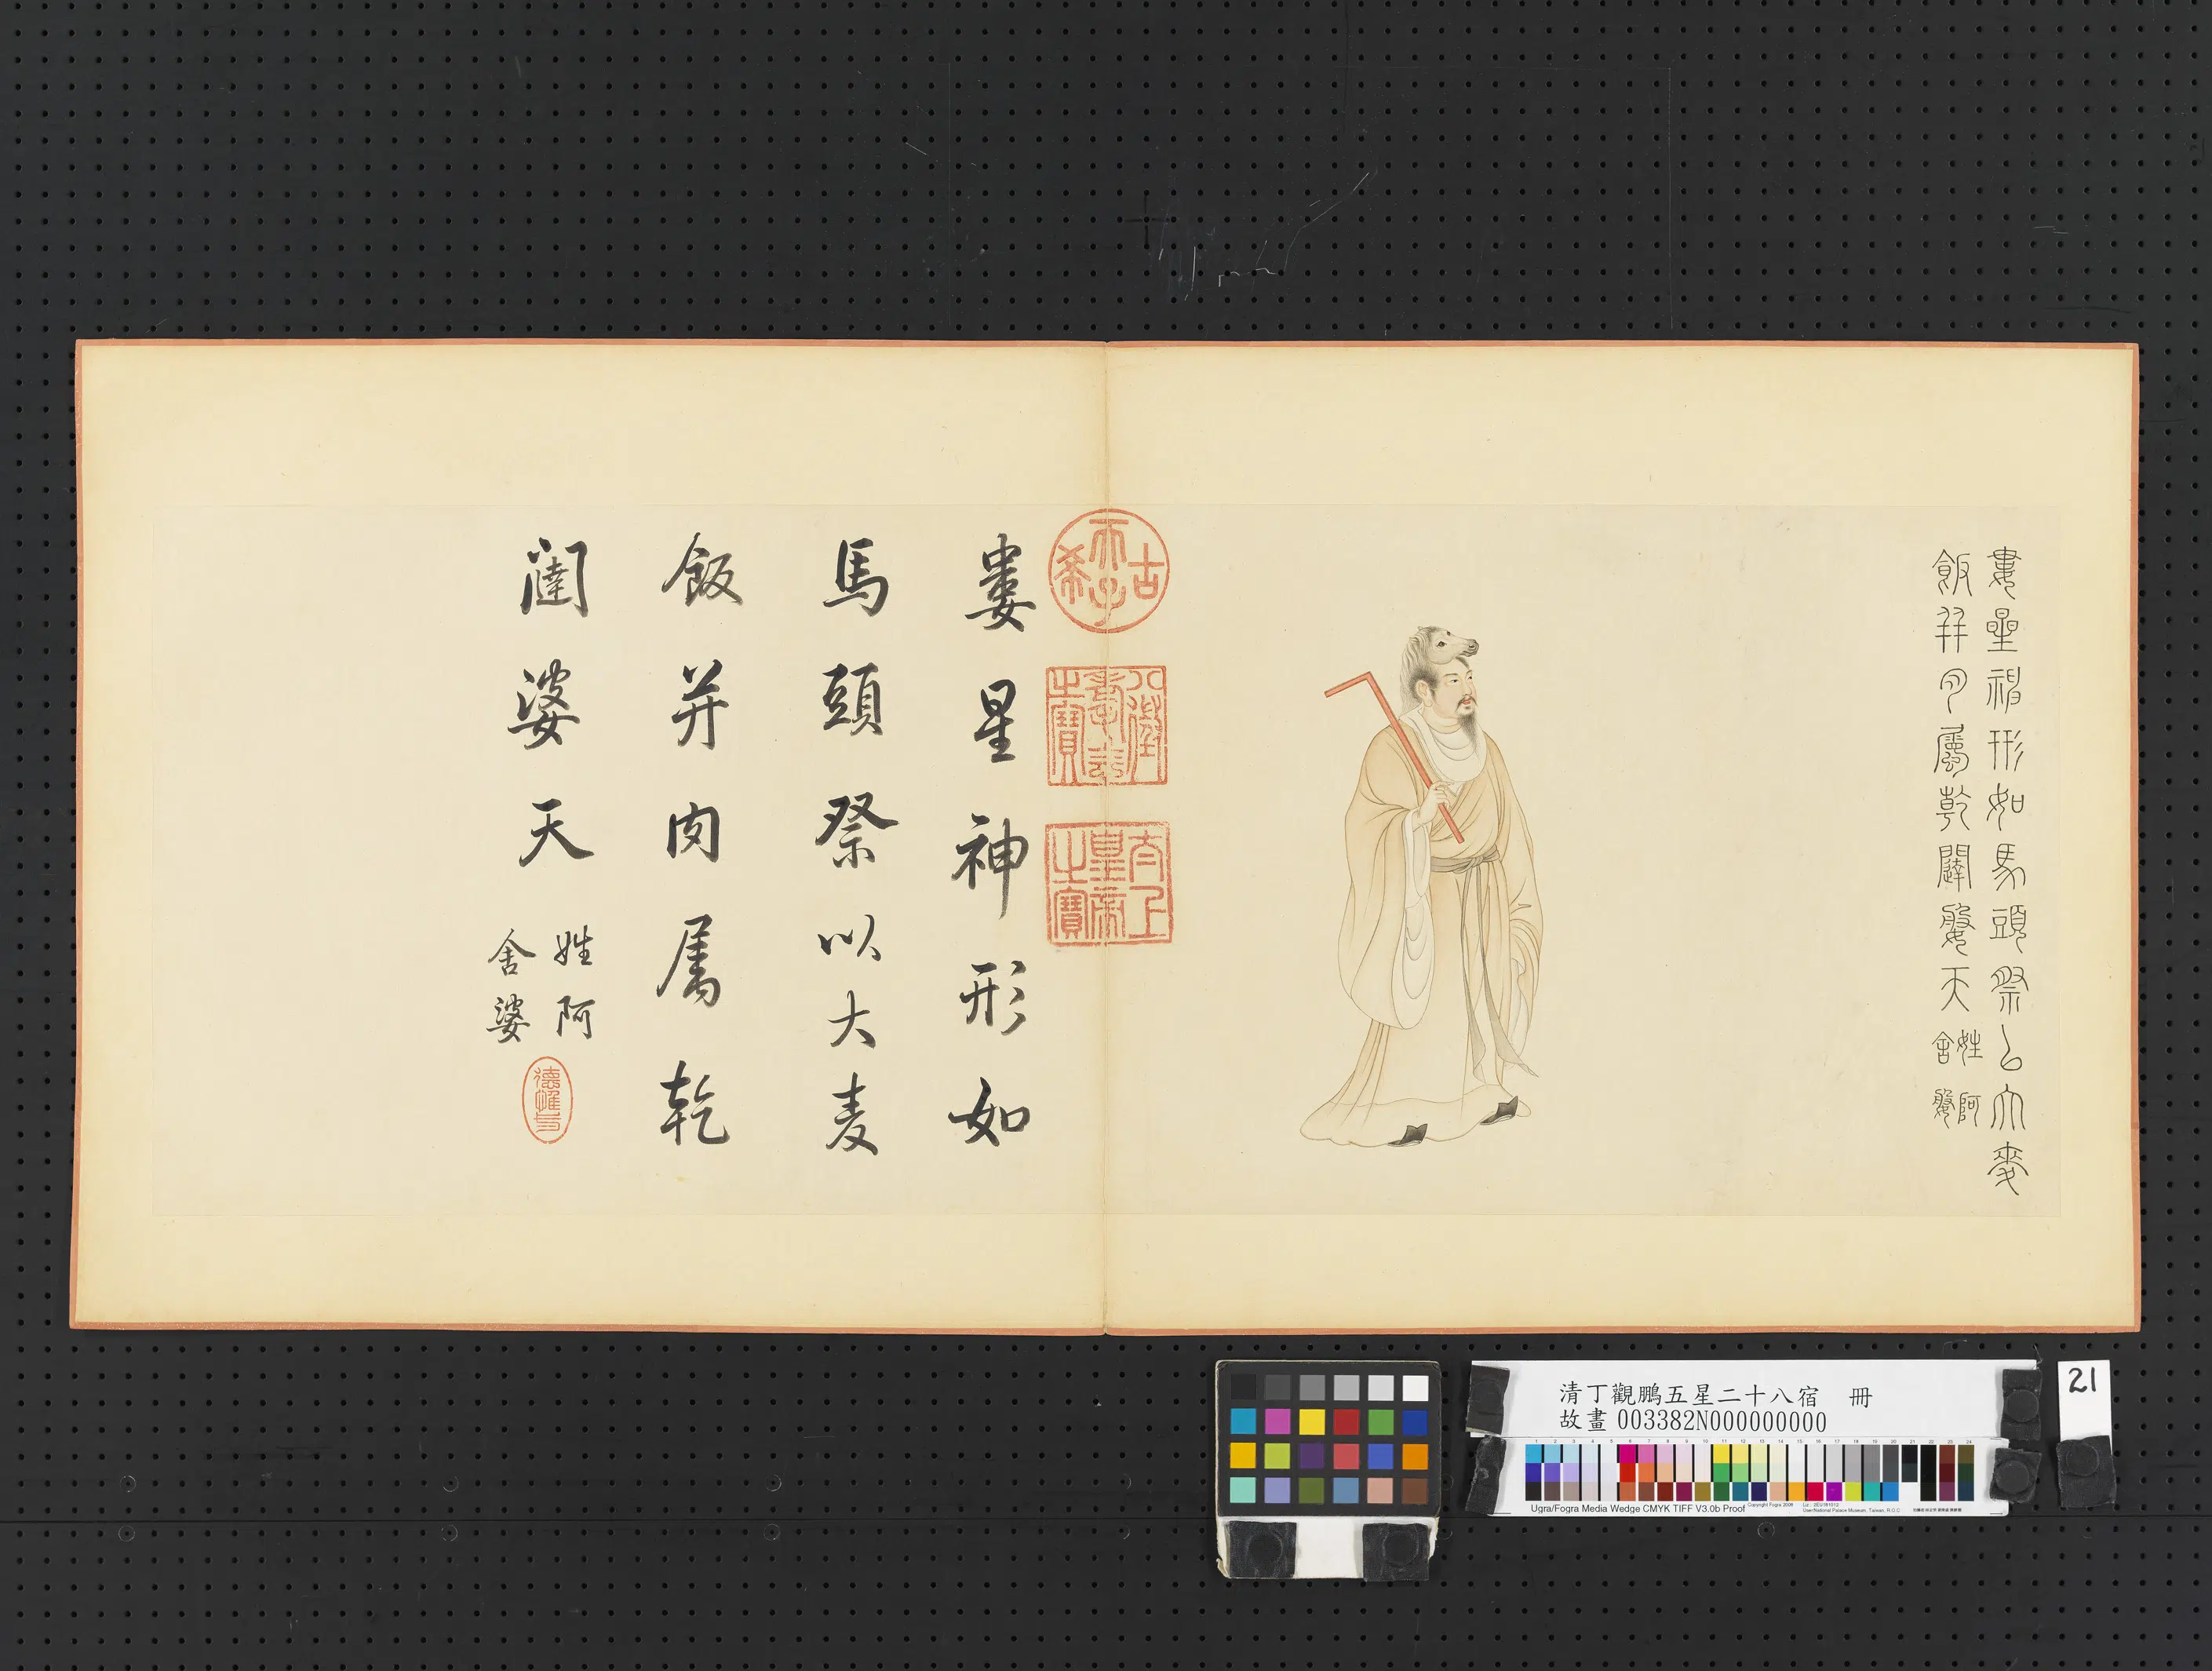 婁星神形如馬頭祭以大麥
飯并肉屬乾闥婆天姓阿
舍婆
古希天子
八徵耄念之寶
太上皇帝之寶
婁星神形如
馬頭祭以大麦
飯并肉属乾
闥婆天姓阿
舍婆
21
清丁觀鵬五星二十八宿 冊
故畫 003382N000000000
Ugra/Fogra Media Wedge CMYK TIFF V3.0b Proof